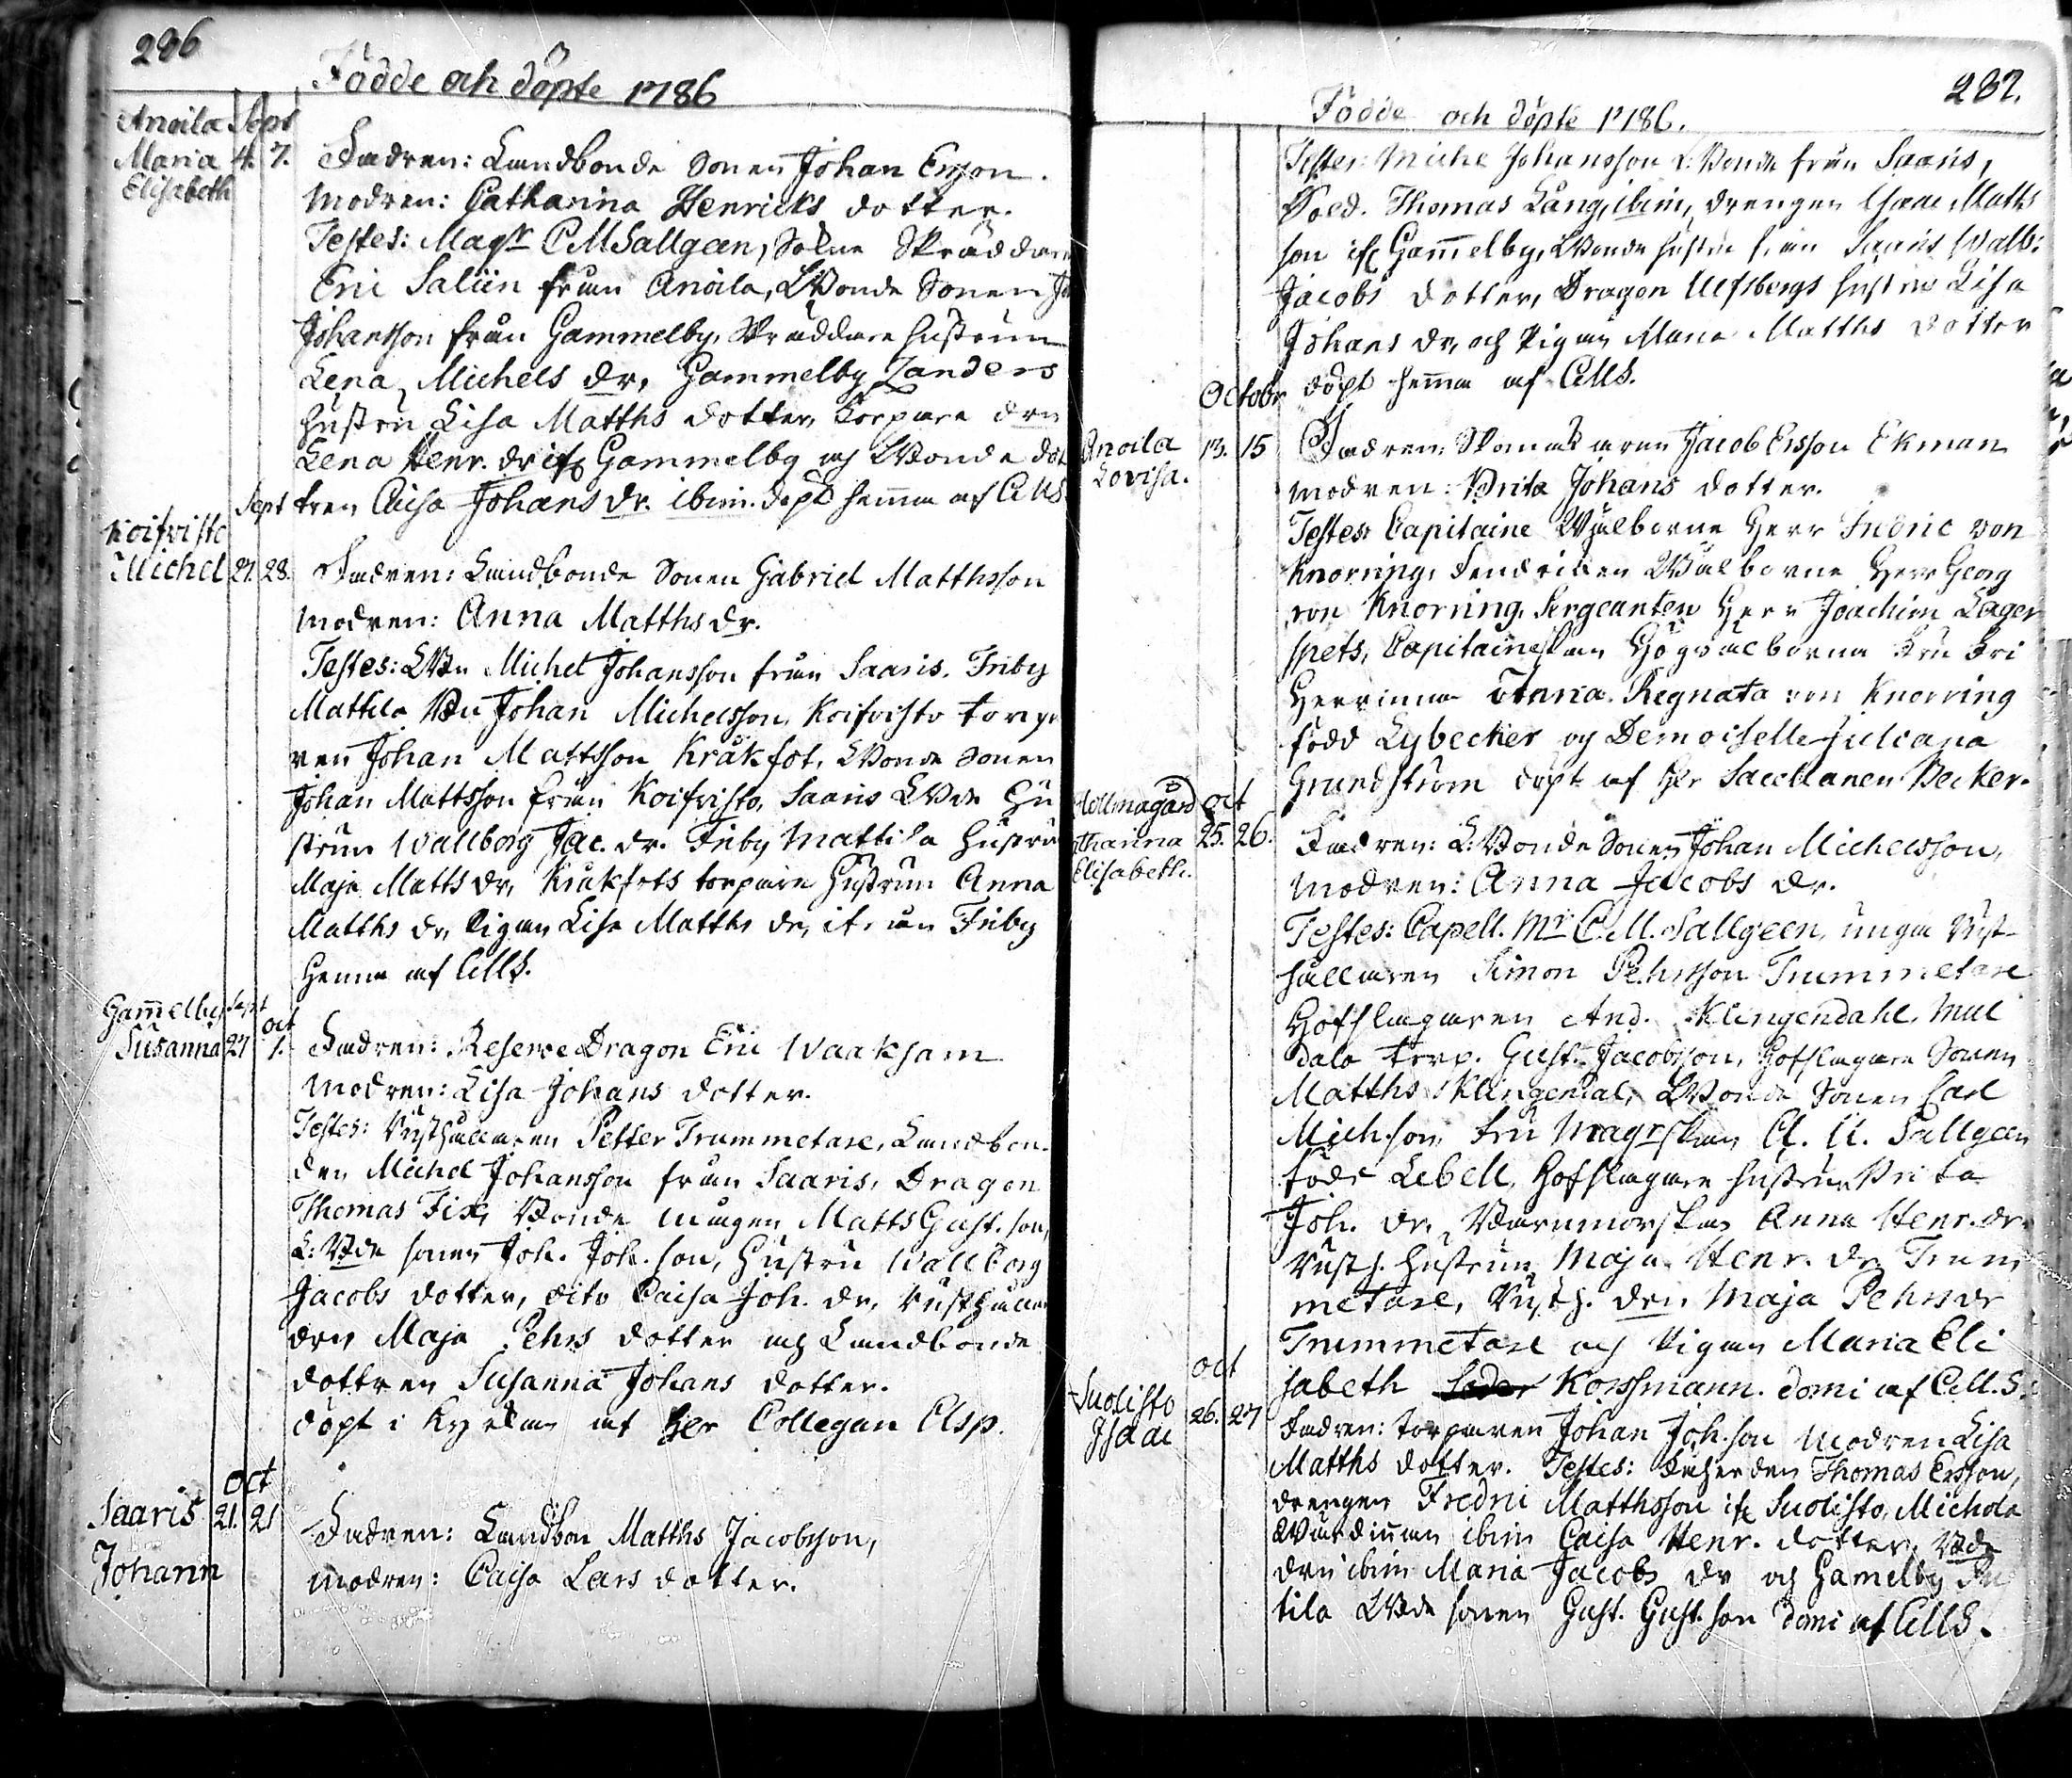 286
Födde och döpte 1786
Anoila Sept
Maria 4. 7. Fadren: Landbonde Sonen Johan Ersson.
Elisabeth
Modren: Catharina Henricks dotter.
Testes: Magr CMSallgeen, Sokne Skräddaren
Eric Saliin från Anoila, LBonde Sonen
Johansson från Gammelby, Skräddare hustrun
Lena Michels dr, Gammelby Zanders
hustru Lisa Matths dotter, torpare drn
Lena Henr. dr if Gammelby och LBonde dot
Sept tren Caisa Johans dr. ibm. döpt hemma af CMS.
Koifvisto
Michel 27. 28. Fadren: Landbonde Sonen Gabriel Matthsson
modren: Anna Matths dr.
Testes: LBn Michel Johansson från Saaris. Friby
Mattila Bn Johan Michelsson, Koifvisto torpa
ren Johan Mattsson Kråkfot, LBonde Sonen
Johan Mattsson från Koifvisto, Saaris LBde Hu
strun Wallborg Jac. dr. Friby Mattila Hustrun
Maja Matts dr, Kråkfots torpare Hustrun Anna
Matths dr, Pigan Lisa Matths dr, ifrån Friby
Hemma af CMS.
Gam̄elby Sept oct
Susanna 27 1. Fadren: Reserve Dragon Eric Waaksam
Modren: Lisa Johans dotter.
Testes: Rusthållaren Petter Trummetare, Landbon-
den Michel Johansson från Saaris, Dragon
Thomas Fix, Bonde mågen Matts Gust. son,
L: Bde sonen Joh. Joh. son, Hustru Wallborg
Jacobs dotter, dito Caisa Joh. dr, Rusthållare
drn Maja Pehrs dotter och Landbonde
dottren Susanna Johans dotter.
döpt i Kyrkan af Her Collegan Elsp.
oct
Saaris 21. 21 Fadren: Landbon Matths Jacobsson,
Johann modren: Caisa Lars dotter.
287.
Födde och döpte 1786.
Testes: Michel Johansson L: Bonde från Saaris,
Sold. Thomas Lång, ibm, drengen Isaac Matths
son if Gam̄elby, LBonde hustru från Saaris Walb:
Jacobs dotter, Dragon Ulfsbergs hustru Lisa
Johans dr, och Pigan Maria Matths dotter
Octobr döpt hem̄a af CMS.
Anoila 13. 15 Fadren: Skomakaren Jacob Ersson Ekman
Lovisa. modren: Brita Johans dotter.
Testes: Capitaine Wälborne Herr Fredric von
Knorring, Fendriken Wälborne Herr Georg
von Knorring, Sergeanten Herr Joachim Lager
spets, Capitaineskan Högwälborna Fru Fri
Herrinna Anna Regnata von Knorring
född Lybecker och Demoiselle Juliana
Grundström döpt af Her Sacellanen Becker.
oct
tharina 25. 26. Fadren: L: Bonde Sonen Johan Michelsson,
Elisabeth. modren: Anna Jacobs dr.
Testes: Capell. Mr C.M. Sallgeen, unga Rust-
hållaren Simon Pehrsson Trummetare
Hofslagaren And. Klingendahl,
dala torp. Gust. Jacobsson, Hofslagare Sonen
Matths Klingendal, LBonde Sonen Carl
Mich.son, Fru Magrskan Sallgeen
född Lebell, Hofslagare hustrun Brita
Joh. dr, Barnmorskan Anna Henr. dr.
Rusth. hustrun Maja Henr. dr Trum
metare, Rusth. drn Maja Pehrs dr
Trummetare och Pigan Maria Eli
oct sabeth Korssmann. domi af C.M.S.
Suolisto
Isaac 26. 27 Fadren: torparen Johan Joh.son modren Lisa
Matths dotter. Testes: Thomas Ersson,
drengen Fredric Matthsson if Suolisto, Michola
Wärdinnan ibm Caisa Henr. dotter, Bde
drn ibm Maria Jacobs dr och Gamelby
tila LBde sonen Gust. Gust. son domi af CMS.